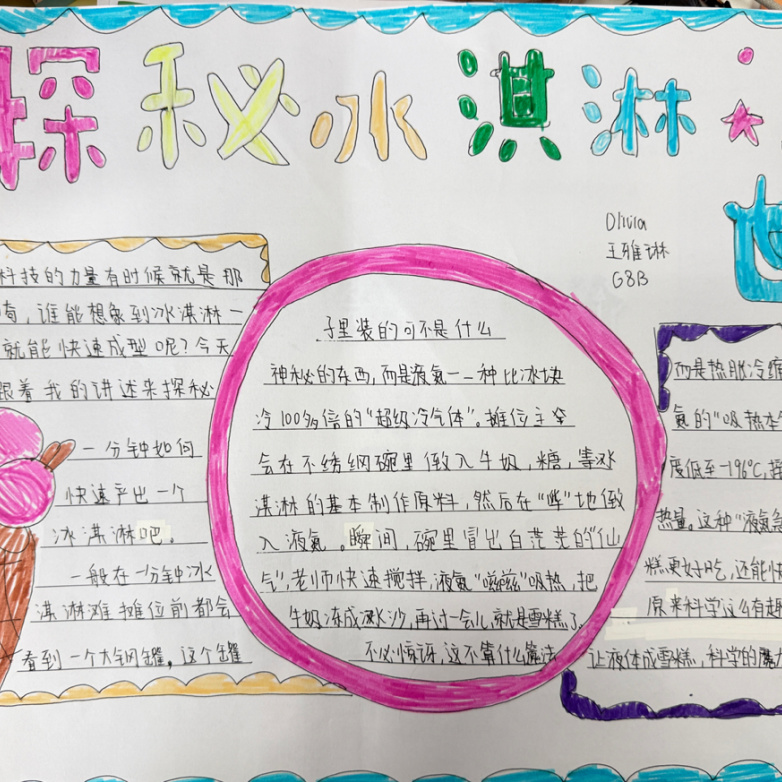 探秘冰淇淋
Olivia
王雅琳
G8B
科技的力量有时候就是那
奇，谁能想象到冰淇淋一
就能快速成型呢？今天
跟着我的讲述来探秘
一分钟如何
快速产出一个
冰淇淋吧。
一般在一分钟冰
淇淋滩摊位前都会
看到一个大钢罐，这个罐
子里装的可不是什么
神秘的东西，而是液氮——种比冰块
冷100多倍的“超级冷气体”。摊位主
会在不绣钢碗里倒入牛奶，糖，等冰
淇淋的基本制作原料，然后在“哗”地倒
入液氮。瞬间，碗里冒出白茫茫的“仙
气”，老师快速搅拌，液氮“嗞嗞”吸热，把
牛奶冻成冰沙，再过一会儿就是雪糕了。
不必惊讶，这不算什么魔法
而是热胀冷缩
氮的“吸热本
度低至-196℃，
热量。这种“液氮
糕更好吃，还能快
原来科学这么有趣
让液体成雪糕，科学的魔力